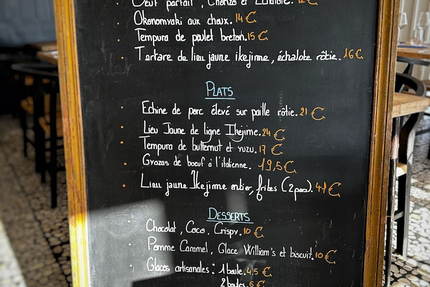 Oeuf parfait, Chorizo et
Okonomyaki aux choux. 14 €
Tempura de poulet breton. 15 €
Tartare de lieu jaune ikejime, échalote rôtie. 16 €
PLATS
Echine de porc élevé sur paille rôtie. 21 €
Lieu Jaune de ligne Ikejime. 24 €
Tempura de butternut et yuzu. 17 €
Gyozas de boeuf à l'italienne. 19,5 €
Lieu jaune Ikejime entier, frites (2pers). 49 €
DESSERTS
Chocolat, Coco, Crispy. 10 €
Pomme Caramel, Glace William's et biscuit. 10 €
Glaces artisanales : 1 boule. 4,5 €
2 boules. 6 €